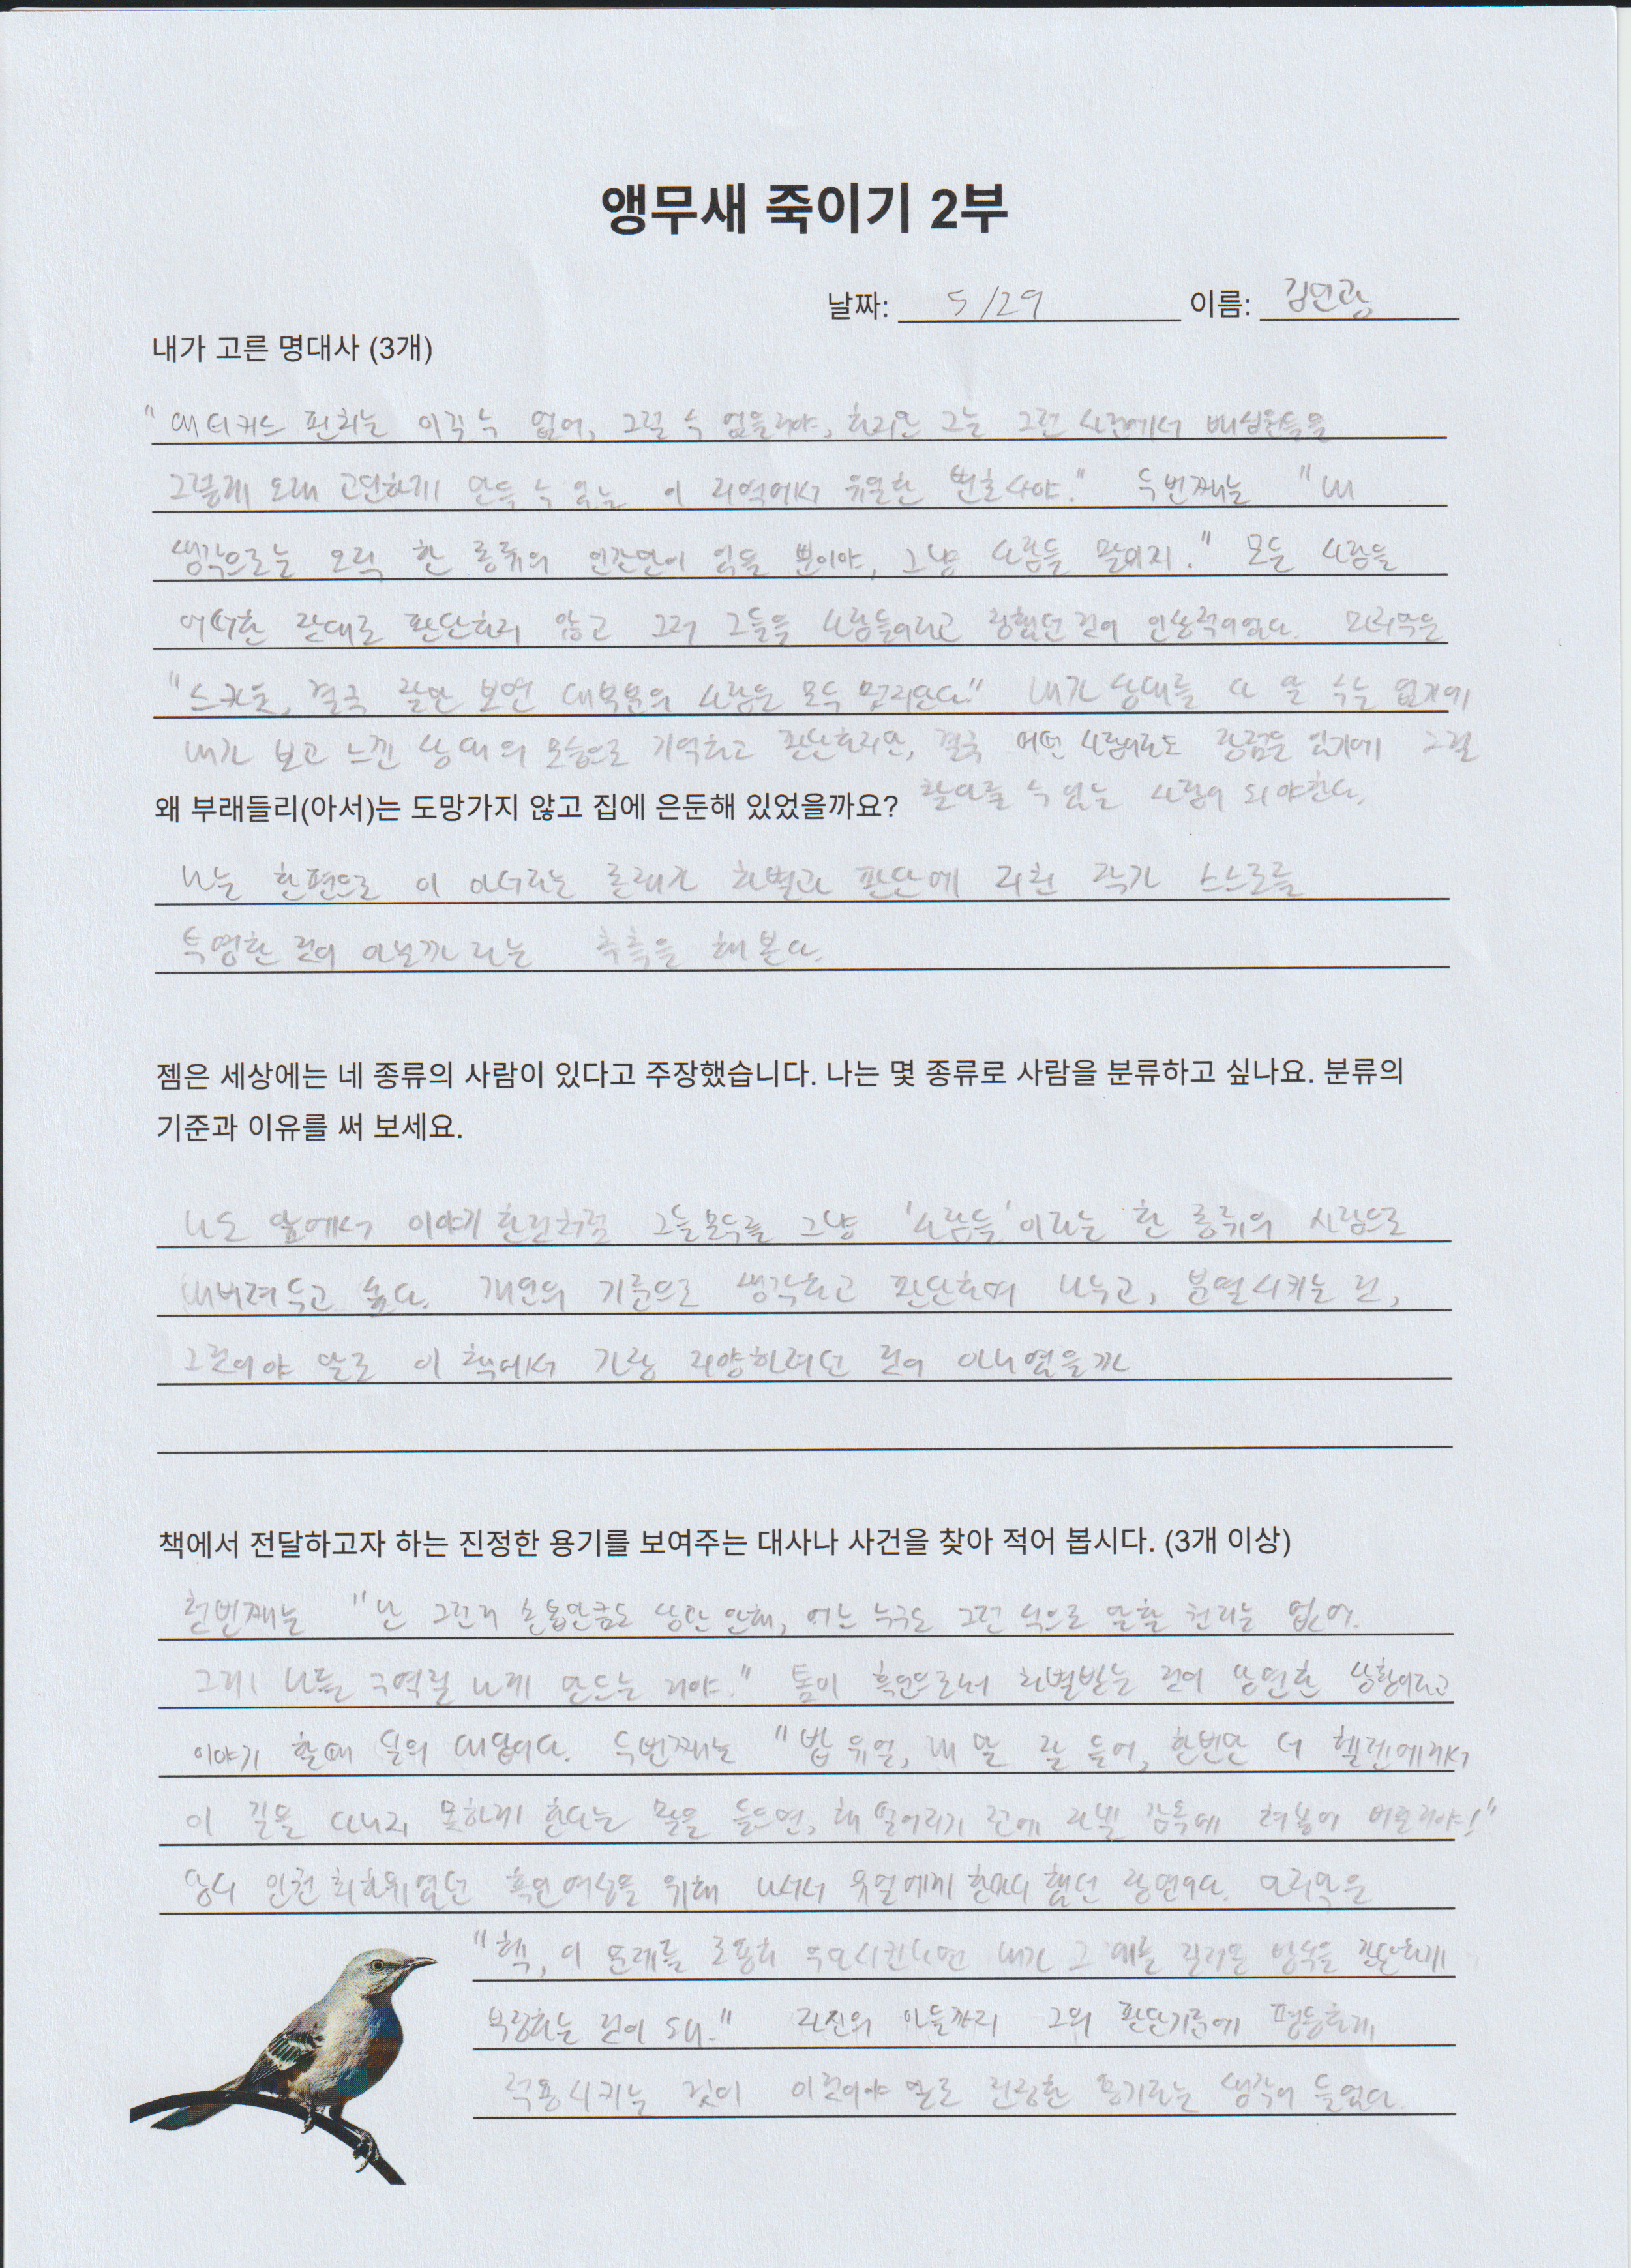 앵무새 죽이기 2부
날짜: 5/29 이름: 김민광
내가 고른 명대사 (3개)
"애티커스 핀치는 이길 수 없어, 그럴 수 없을거야, 하지만 그는 그런 사건에서 배심원들을
그렇게 오래 고민하게 만들 수 있는 이 지역에서 유일한 변호사야." 두번째는 "내
생각으로는 오직 한 종류의 인간만이 있을 뿐이야, 그냥 사람들 말이지." 모든 사람을
어떠한 잣대로 판단하지 않고 그저 그들을 사람들이라고 칭했던 것이 인상적이었다. 마지막은
"스카웃, 결국 잘만 보면 대부분의 사람은 모두 멋지단다." 내가 상대를 다 알 수는 없기에
내가 보고 느낀 상대의 모습으로 기억하고 판단하지만, 결국 어떤 사람이라도 장점은 있기에 그걸
왜 부래들리(아서)는 도망가지 않고 집에 은둔해 있었을까요? 찾아줄 수 있는 사람이 되야한다.
나는 한편으로 이 아서라는 존재가 차별과 판단에 지친 작가 스스로를
투영한 것이 아닐까 라는 추측을 해 본다.
젬은 세상에는 네 종류의 사람이 있다고 주장했습니다. 나는 몇 종류로 사람을 분류하고 싶나요. 분류의
기준과 이유를 써 보세요.
나도 앞에서 이야기 한것처럼 그들모두를 그냥 '사람들'이라는 한 종류의 사람으로
내버려두고 싶다. 개인의 기준으로 생각하고 판단하며 나누고, 분열시키는 것,
그것이야 말로 이 책에서 가장 지양하려던 것이 아니었을까
책에서 전달하고자 하는 진정한 용기를 보여주는 대사나 사건을 찾아 적어 봅시다. (3개 이상)
첫번째는 "난 그런거 손톱만큼도 상관 안해, 어느 누구도 그런 식으로 말할 권리는 없어.
그게 나를 구역질 나게 만드는 거야." 톰이 흑인으로서 차별받는 것이 당연한 상황이라고
이야기 할때 딜의 대답이다. 두번째는 "밥 유얼, 내 말 잘 들어, 한번만 더 헬렌에게서
이 길을 다니지 못하게 한다는 말을 들으면, 해 떨어지기 전에 감옥에 쳐넣어 버릴거야!"
당시 인권 최하위였던 흑인여성을 위해 나서서 유얼에게 한마디 했던 장면이다. 마지막은
"헥, 이 문제를 조용히 무마시킨다면 내가 그 애를 길러온 방식을 간단하게
부정하는 것이 돼." 자신의 아들까지 그의 판단기준에 평등하게
적용시키는 것이 이것이야 말로 진정한 용기라는 생각이 들었다.